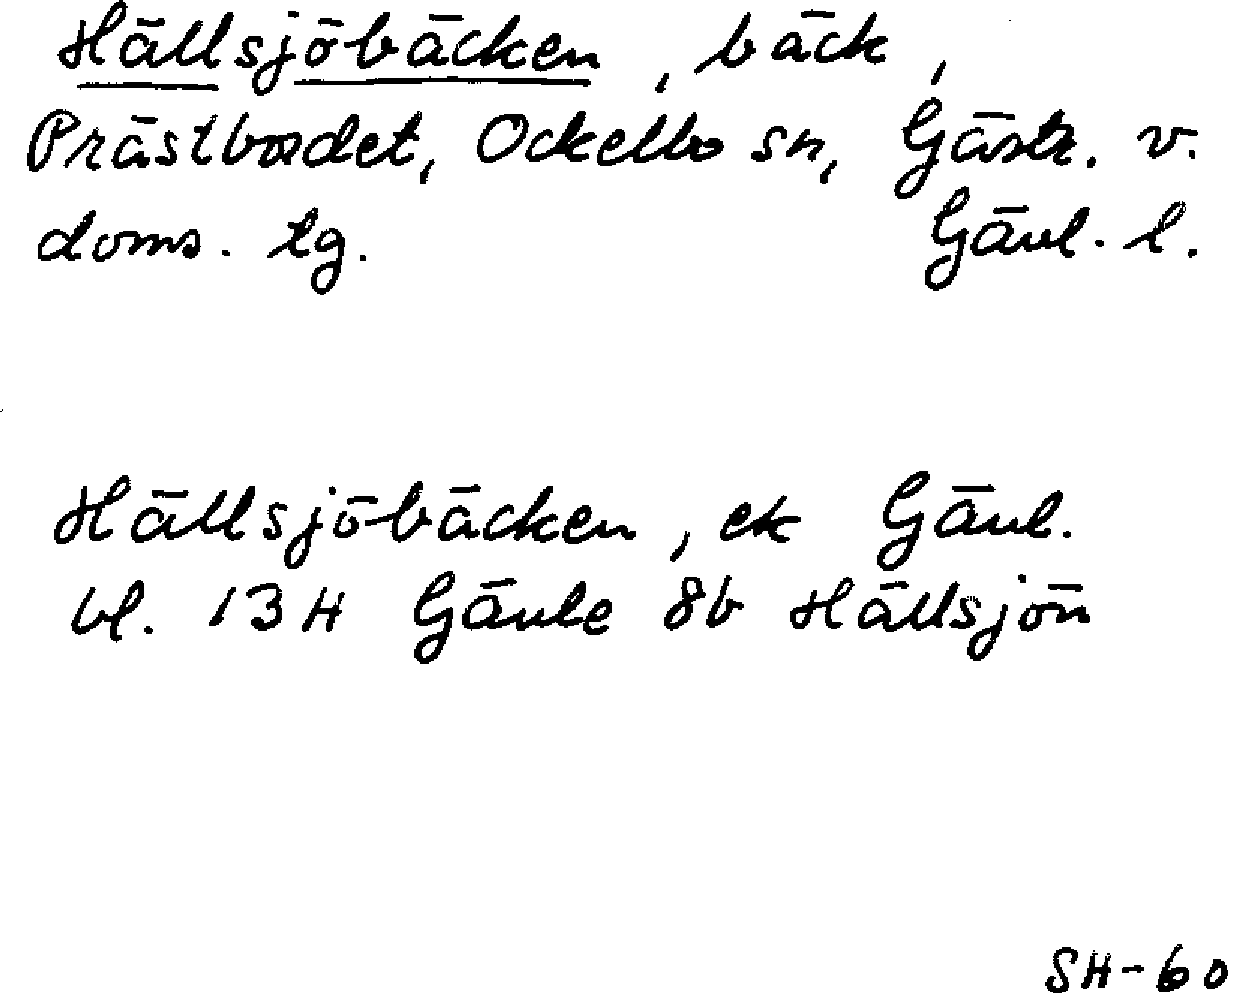 Hällsjöbäcken, bäck,
Prästbordet, Ockelbo sn, Gästr. v.
doms. tg. Gävl. l.
Hällsjöbäcken, ek Gävl.
bl. 13 H Gävle 8b Hällsjön
SH-60